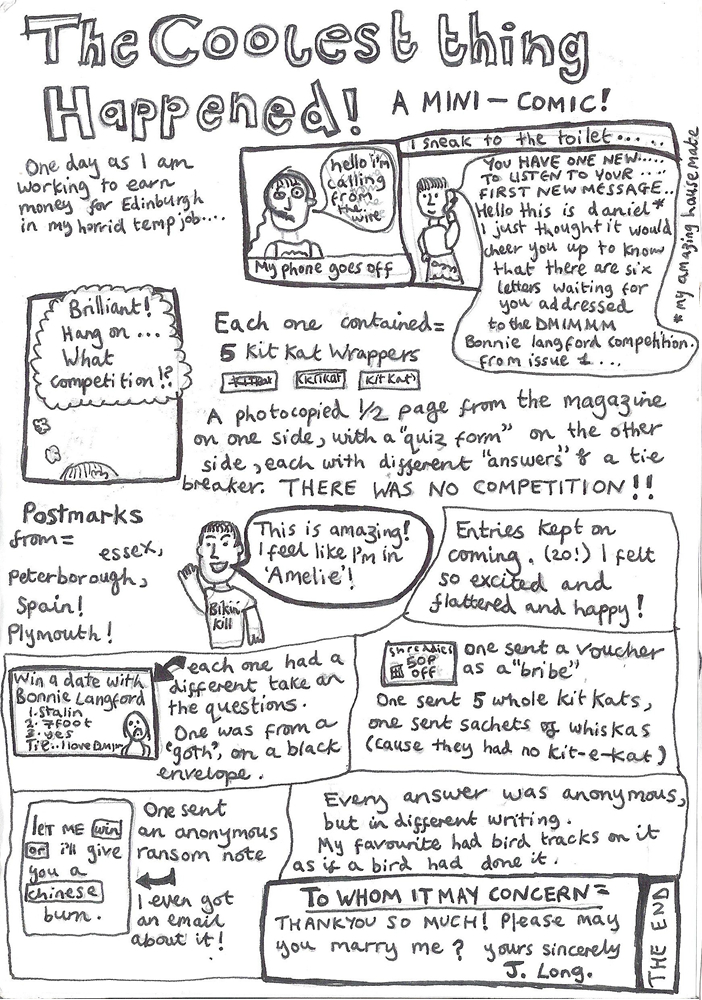 The Coolest thing
Happened! A MINI - COMIC!
One day as I am
working to earn
money for Edinburgh
in my horrid temp job....
hello i'm
calling
from
the
wire
My phone goes off
I sneak to the toilet.....
YOU HAVE ONE NEW.....
TO LISTEN TO YOUR ....
FIRST NEW MESSAGE...
Hello this is daniel*
I just thought it would
cheer you up to know
that there are six
letters waiting for
you addressed
to the DMIMMM
Bonnie langford competition.
from issue 1....
*my amazing housemate
Brilliant!
Hang on ...
What
competition!?
Each one contained=
5 Kit Kat Wrappers
KitKat KitKat
A photocopied 1/2 page from the magazine
on one side, with a "quiz form" on the other
side, each with different "answers" & a tie
breaker. THERE WAS NO COMPETITION!!
Postmarks
from=
essex,
Peterborough,
Spain!
Plymouth!
This is amazing!
I feel like I'm in
'Amelie'!
Bikini
kill
Entries kept on
coming. (20!) I felt
so excited and
flattered and happy!
Win a date with
Bonnie Langford
1. Stalin
2. 7 foot
3. yes
Tie.. I love
each one had a
different take on
the questions.
One was from a
'goth', on a black
envelope.
Shreddies
50P
off
one sent a voucher
as a "bribe"
One sent 5 whole kit kats,
one sent sachets of whiskas
(cause they had no kit-e-kat)
let ME win
or i'll give
you a
chinese
burn.
One sent
an anonymous
ransom note
I even got
an email
about it!
Every answer was anonymous,
but in different writing.
My favourite had bird tracks on it
as if a bird had done it.
TO WHOM IT MAY CONCERN=
THANKYOU SO MUCH! Please may
you marry me? yours sincerely
J. Long.
THE END